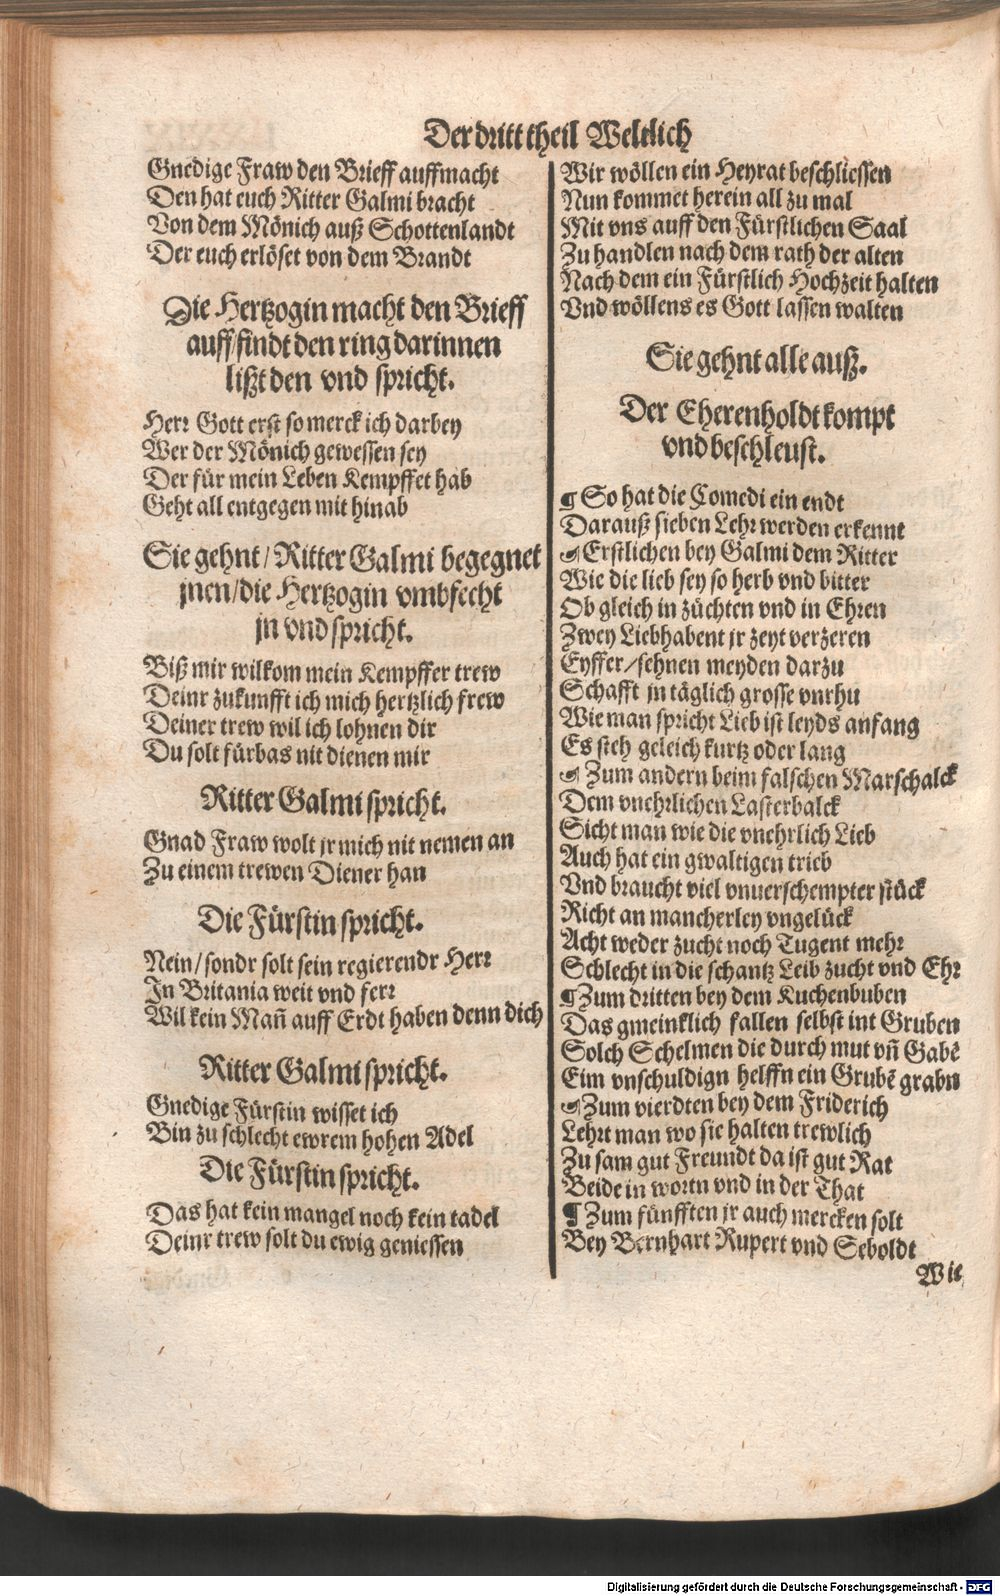 Der dritt theil Weltlich
Gnedige Fraw den Brieff auffmacht
Den hat euch Ritter Galmi bracht
Von dem Mönich auß Schottenlandt
Der euch erlöset von dem Brandt
Die Hertzogin macht den Brieff
auff/findt den ring darinnen
lißt den vnd spricht.
Herr Gott erst so merck ich darbey
Wer der Mönich gewessen sey
Der für mein Leben Kempffet hab
Geht all entgegen mit hinab
Sie gehnt/Ritter Galmi begegnet
jnen/die Hertzogin vmbfecht
jn vnd spricht.
Biß mir wilkom mein Kempffer trew
Deinr zukunfft ich mich hertzlich frew
Deiner trew wil ich lohnen dir
Du solt fürbas nit dienen mir
Ritter Galmi spricht.
Gnad Fraw wolt jr mich nit nemen an
Zu einem trewen Diener han
Die Fürstin spricht.
Nein/sondr solt sein regierendr Herr
In Britania weit vnd ferr
Wil kein Man̄ auff Erdt haben denn dich
Ritter Galmi spricht.
Gnedige Fürstin wisset ich
Bin zu schlecht ewrem hohen Adel
Die Fürstin spricht.
Das hat kein mangel noch kein tadel
Deinr trew solt du ewig geniessen
Wir wöllen ein Heyrat beschliessen
Nun kommet herein all zu mal
Mit vns auff den Fürstlichen Saal
Zu handlen nach dem rath der alten
Nach dem ein Fürstlich Hochzeit halten
Vnd wöllens es Gott lassen walten
Sie gehnt alle auß.
Der Eherenholdt kompt
vnd beschleust.
¶ So hat die Comedi ein endt
Darauß sieben Lehr werden erkennt
☙ Erstlichen bey Galmi dem Ritter
Wie die lieb sey so herb vnd bitter
Ob gleich in züchten vnd in Ehren
Zwey Liebhabent jr zeyt verzeren
Eyffer/sehnen meyden darzu
Schafft jn täglich grosse vnrhu
Wie man spricht Lieb ist leyds anfang
Es steh geleich kurtz oder lang
☙ Zum andern beim falschen Marschalck
Dem vnehrlichen Lasterbalck
Sicht man wie die vnehrlich Lieb
Auch hat ein gwaltigen trieb
Vnd braucht viel vnuerschempter stück
Richt an mancherley vngelück
Acht weder zucht noch Tugent mehr
Schlecht in die schantz Leib zucht vnd Ehr
¶ Zum dritten bey dem Kuchenbuben
Das gmeinklich fallen selbst int Gruben
Solch Schelmen die durch mut vn̄ Gabē
Eim vnschuldign helffn ein Grubē grabn
☙ Zum vierdten bey dem Friderich
Lehrt man wo sie halten trewlich
Zu sam gut Freundt da ist gut Rat
Beide in wortn vnd in der That
¶ Zum fünfften jr auch mercken solt
Bey Bernhart Rupert vnd Seboldt
Wie
Digitalisierung gefördert durch die Deutsche Forschungsgemeinschaft - DFG